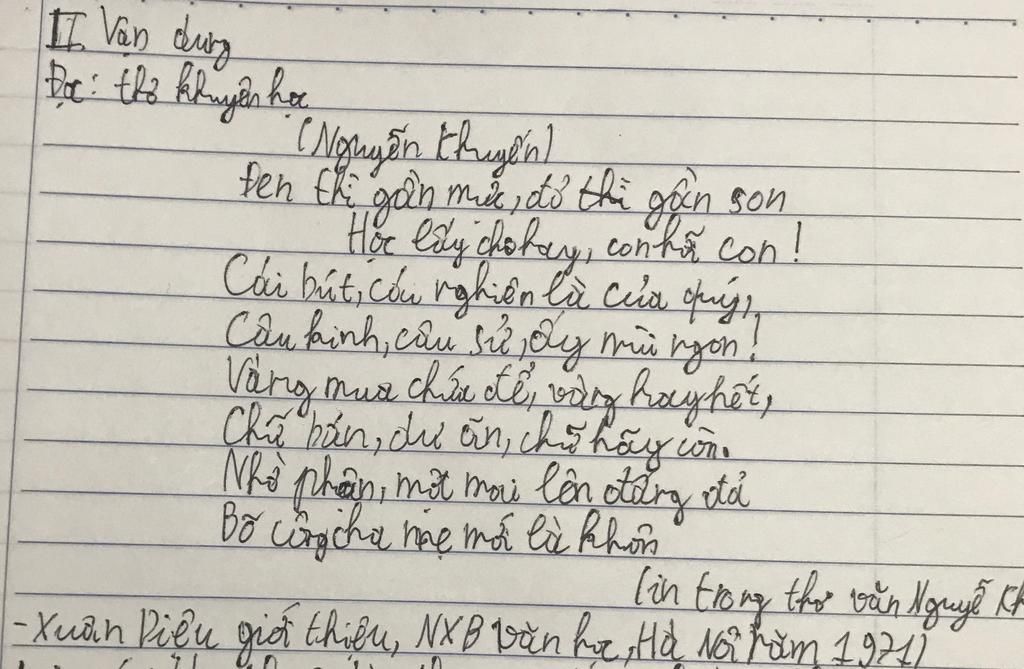 II. Vận dung
Đọc: thơ khuyên học
(Nguyễn Khuyến)
Đen thì gần mức, đỏ thì gần son
Học lấy cho hay, con hỡ con!
Cái bút, cái nghiên là của quý,
Câu kinh, câu sử, ấy mùi ngon!
Vàng mua chứa để, vàng hay hết,
Chữ bán, dư ăn, chữ hãy còn.
Nhờ phận, một mai lên đáng đỏ
Bõ công cha mẹ mới là khôn
(in trong thơ văn Nguyễ Kh
- Xuân Diệu giới thiệu, NXB văn học, Hà Nôi năm 1971)